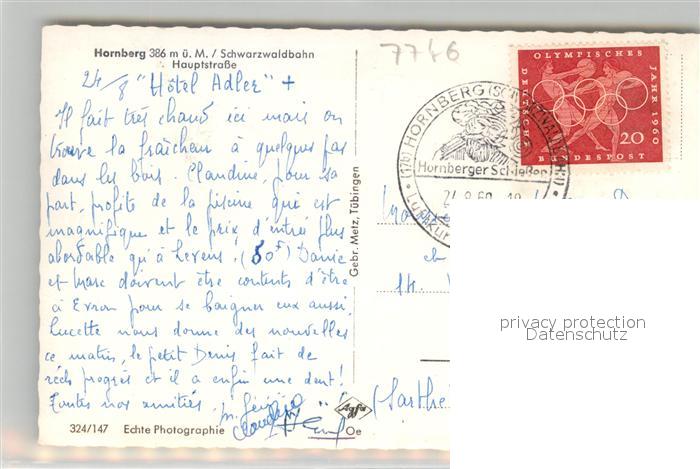 Hornberg 386 m ü. M. / Schwarzwaldbahn
Hauptstraße
7746
24/8 "Hôtel Adler" +
Il fait très chaud ici mais on
trouve la fraîcheur à quelques pas
dans les bois. Claudine, pour sa
part, profite de la piscine qui est
magnifique et le prix d'entrée plus
abordable qu'à Levens. (50F) Danie
et Marc doivent être contents d'être
à Evron pour se baigner eux aussi.
Lucette nous donne des nouvelles
ce matin, le petit Denis fait de
réels progrès et il a enfin une dent!
Toutes nos amitiés.
Claudine
324/147 Echte Photographie
Agfa
Oe
Gebr. Metz, Tübingen
OLYMPISCHES
JAHR 1960
DEUTSCHE
BUNDESPOST
20
(17b) HORNBERG (SCHWARZWALDBAHN)
Hornberger Schießen
24.8.60
Luftkur
et
(Sarthe
privacy protection
Datenschutz